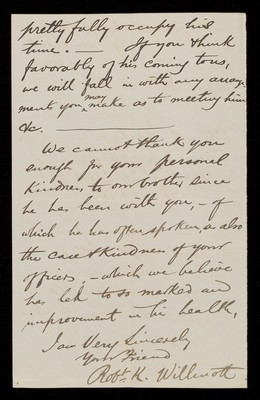 pretty fully occupy his
time. — If you think
favorably of his coming to us,
we will fall in with any arrange-
ment you may make as to meeting him
&c. —
We cannot thank you
enough for your personal
kindness to our brother since
he has been with you, – of
which he has often spoken, as also
the care & kindness of your
officers, – which we believe
has led to so marked and
improvement in his health,
I am Very Sincerely
Your Friend
Robt. K. Willmott